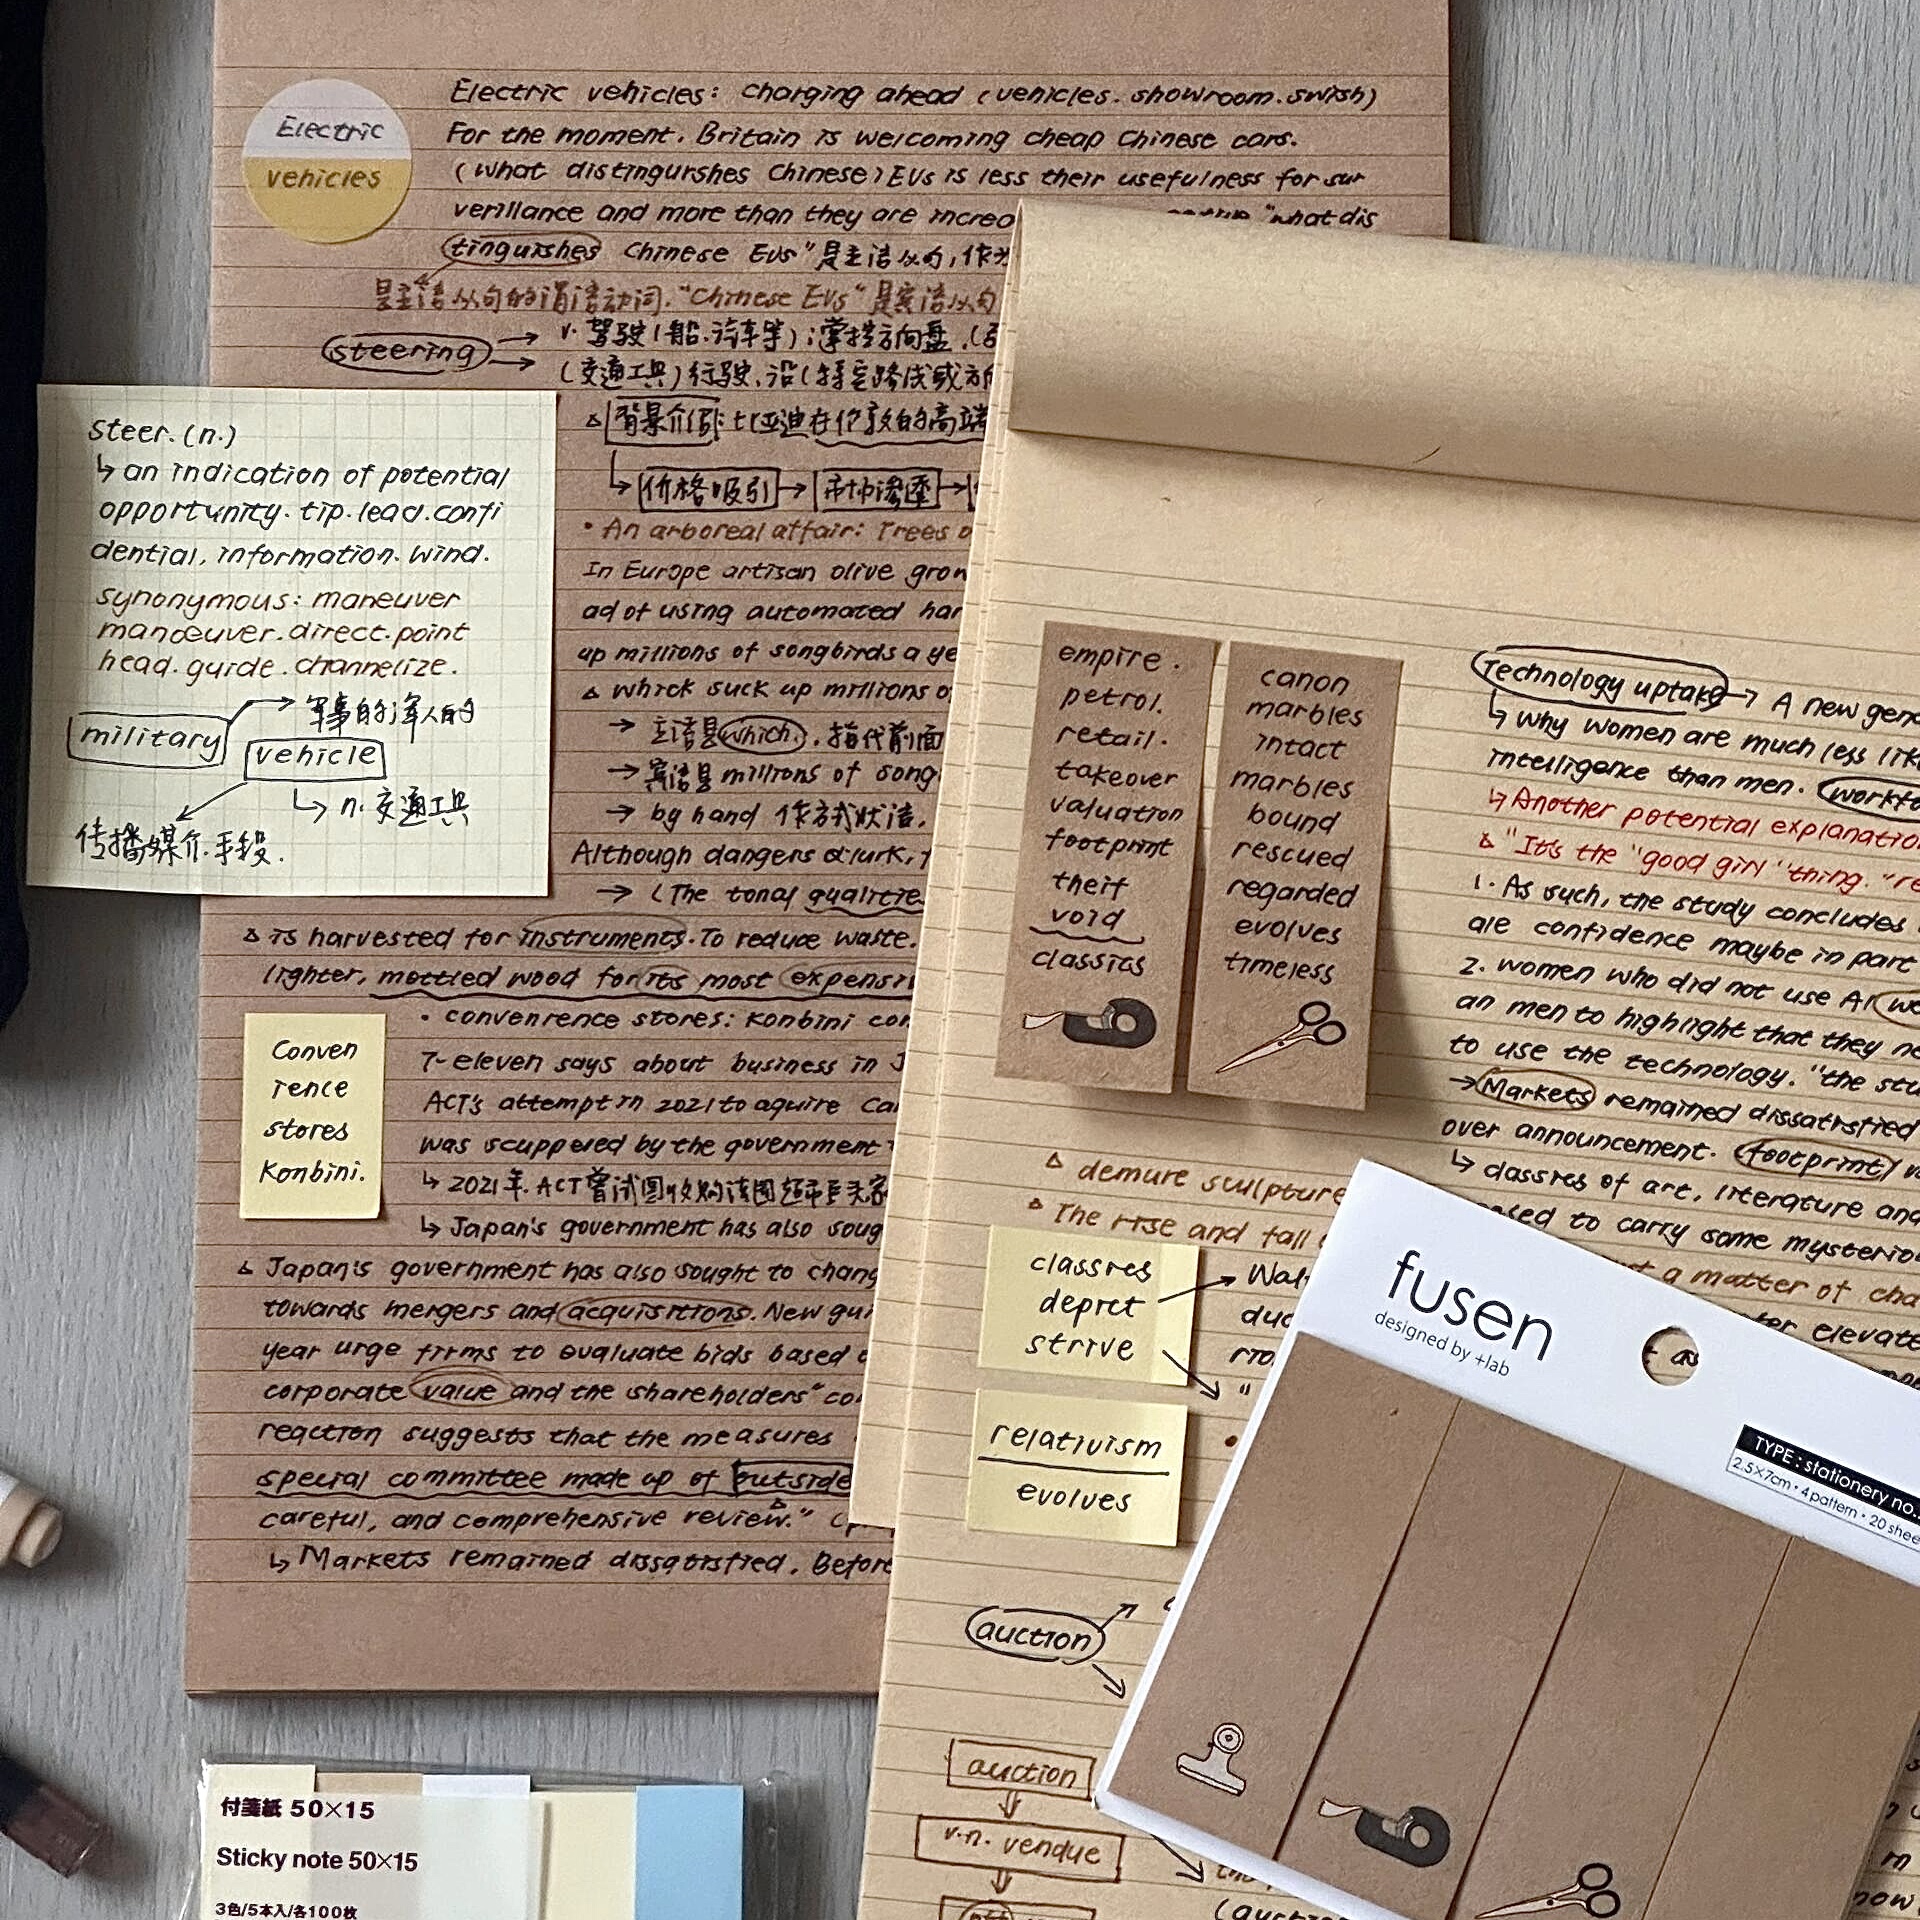 Electric
vehicles
Electric vehicles: charging ahead (vehicles. showroom. swish)
For the moment. Britain is welcoming cheap Chinese cars.
(what distingurshes Chinese) EVs is less their usefulness for sur
verillance and more than they are increa "what dis
tinguishes Chinese EVs"是主语从句,作为
是主语从句的谓语动词."Chinese EVs"是宾语从句
steering
v. 驾驶(船.汽车等);掌控方向盘.
(交通工具)行驶.沿(特定路线或方向
背景介绍:比亚迪在伦敦的高端
价格吸引→市场渗透→
Steer. (n.)
↳ an indication of potential
opportunity. tip. lead. confi
dential, information. wind.
synonymous: maneuver
manoeuver. direct. point
head. guide. channelize.
military → 军事的军人的
vehicle
↳ n. 交通工具
传播媒介.手段.
• An arboreal affair: Trees
In Europe artisan olive grow
ad of using automated har
up millions of songbirds a ye
△ which suck up millions o
→ 主语是which. 指代前面
→ 宾语是 millions of song
→ by hand 作方式状语.
Although dangers lurk,
→ (The tonal qualitie
△ is harvested for instruments. To reduce waste.
lighter, mottled wood for its most expensi
Conven
rence
stores
Konbini.
• convenrence stores: Konbini con
7-eleven says about business in J
ACT's attempt in 2021 to aquire Ca
was scuppered by the government
↳ 2021年. ACT曾试图收购法国超市巨头家
↳ Japan's government has also soug
△ Japan's government has also sought to chang
towards mergers and acquisitions. New gui
year urge firms to evaluate bids based
corporate value and the shareholders" co
reaction suggests that the measures
special committee made up of outside
careful, and comprehensive review."
↳ Markets remained dissatisfied. Before
empire.
petrol.
retail.
takeover
valuation
footprint
theif
void
classics
canon
marbles
intact
marbles
bound
rescued
regarded
evolves
timeless
Technology uptake → A new gen
↳ why women are much less lik
intelligence than men.
↳ Another potential explanatio
△ "It's the "good girl" thing.
1. As such, the study concludes
ale confidence maybe in part
2. women who did not use AI
an men to highlight that they ne
to use the technology. "the stu
→ Markets remained dissatisfied
over announcement. footprint
↳ classres of art, literature and
to carry some mysterio
a matter of cha
elevate
△ demure sculpture
△ The rise and fall
classres
depict
strive
relativism
evolves
auction
auction
v.n. vendue
fusen
designed by +lab
TYPE : stationery no.
2.5×7cm • 4pattern • 20 shee
付箋紙 50×15
Sticky note 50×15
3色/5本入/各100枚